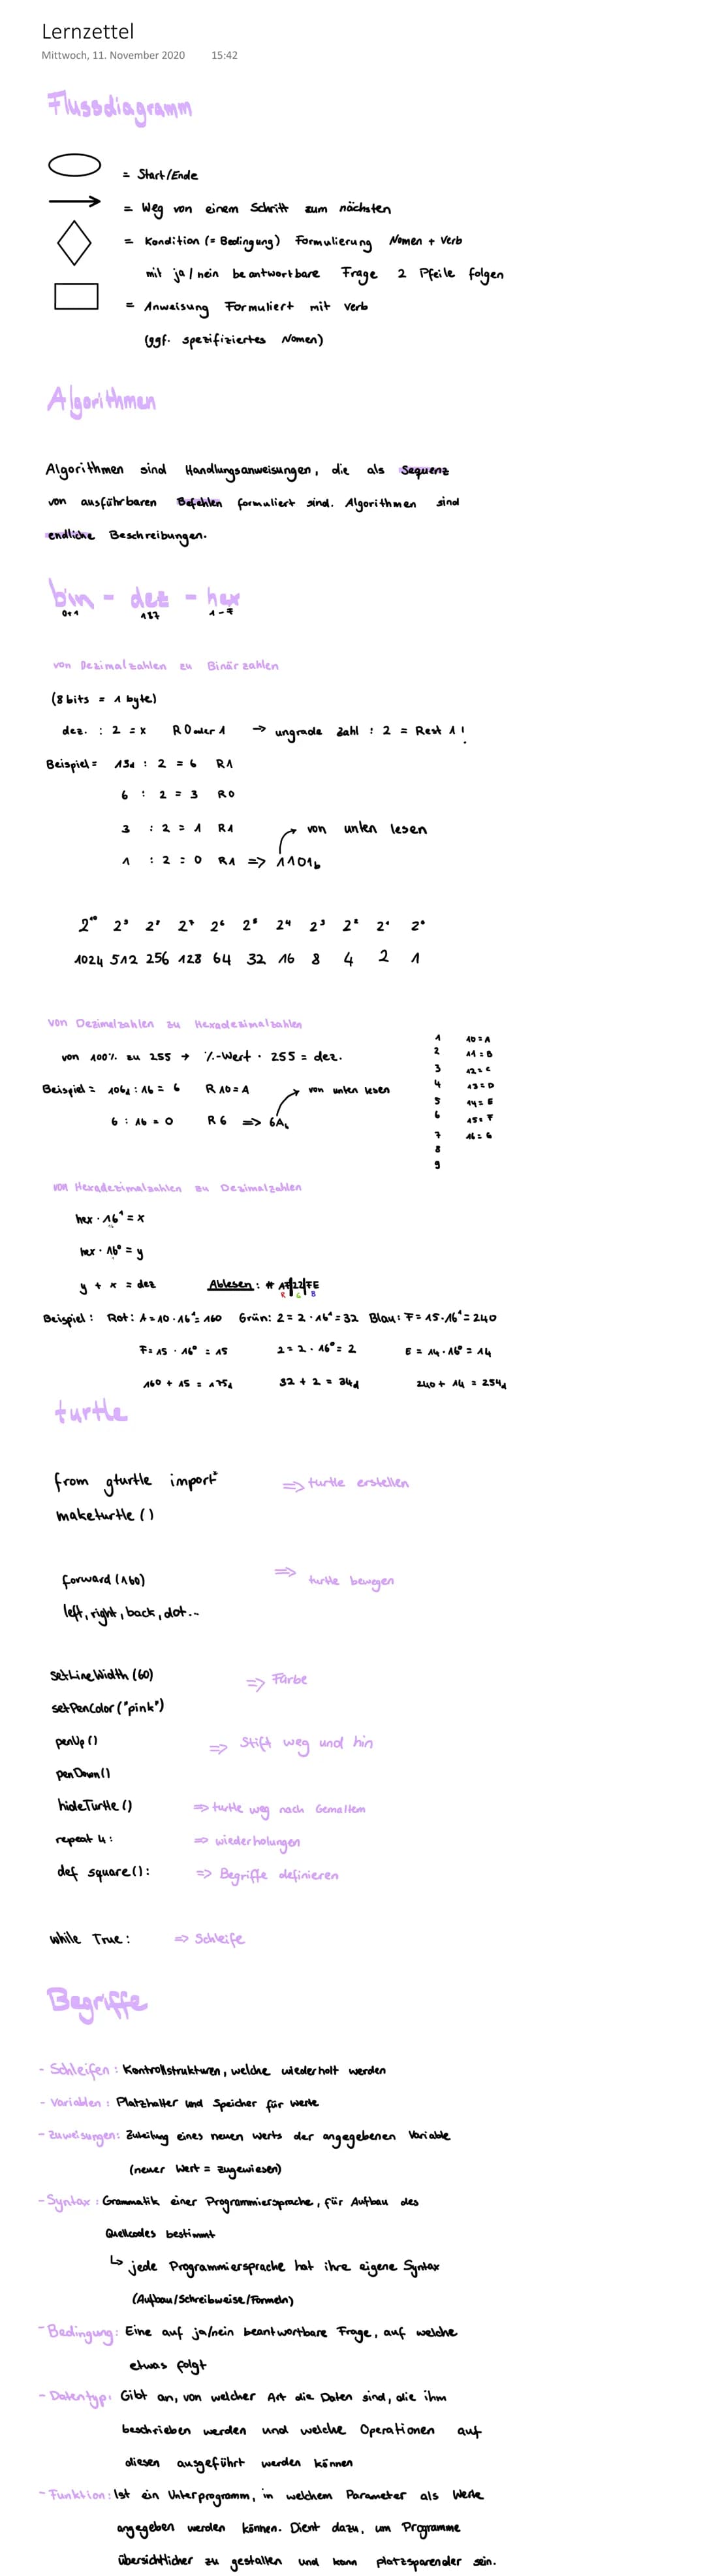 Lernzettel
Mittwoch, 11. November 2020 15:42
Flussdiagramm
= Start/Ende
= Weg von einem Schritt zum nächsten
= Kondition (= Bedingung) Formulierung Nomen + Verb
mit ja/nein beantwortbare Frage 2 Pfeile folgen
= Anweisung Formuliert mit Verb
(ggf. spezifiziertes Nomen)
Algorithmen
Algorithmen sind Handlungsanweisungen, die als Sequenz
von ausführbaren Befehlen formuliert sind. Algorithmen sind
endliche Beschreibungen.
bin - dez - hex
0+1 187 1-F
von Dezimalzahlen zu Binärzahlen
(8 bits = 1 byte)
dez. : 2 = x R0 oder 1 → ungrade Zahl : 2 = Rest 1!
Beispiel = 13d : 2 = 6 R1
6 : 2 = 3 R0
3 : 2 = 1 R1 von unten lesen
1 : 2 = 0 R1 => 1101b
2¹⁰ 2⁹ 2⁸ 2⁷ 2⁶ 2⁵ 2⁴ 2³ 2² 2¹ 2⁰
1024 512 256 128 64 32 16 8 4 2 1
von Dezimalzahlen zu Hexadezimalzahlen
von 100% zu 255 → %-Wert · 255 = dez.
Beispiel = 106d : 16 = 6 R10 = A von unten lesen
6 : 16 = 0 R6 => 6Ah
1 10 = A
2 11 = B
3 12 = C
4 13 = D
5 14 = E
6 15 = F
7 16 = G
8
9
von Hexadezimalzahlen zu Dezimalzahlen
hex · 16¹ = x
hex · 16⁰ = y
y + x = dez Ablesen : # AF|22|FE
R G B
Beispiel : Rot: A = 10 · 16¹ = 160 Grün: 2 = 2 · 16¹ = 32 Blau: F = 15 · 16¹ = 240
F = 15 · 16⁰ = 15 2 = 2 · 16⁰ = 2 E = 14 · 16⁰ = 14
160 + 15 = 175d 32 + 2 = 34d 240 + 14 = 254d
turtle
from gturtle import* => turtle erstellen
maketurtle ()
forward (160) => turtle bewegen
left, right, back, dot...
setLineWidth (60) => Farbe
setPenColor ("pink")
penUp () => Stift weg und hin
penDown ()
hideTurtle () => turtle weg nach Gemaltem
repeat 4: => wiederholungen
def square (): => Begriffe definieren
while True: => Schleife
Begriffe
- Schleifen : Kontrollstrukturen, welche wiederholt werden
- Variablen : Platzhalter und Speicher für Werte
- Zuweisungen: Zuteilung eines neuen Werts der angegebenen Variable
(neuer Wert = zugewiesen)
- Syntax : Grammatik einer Programmiersprache, für Aufbau des
Quellcodes bestimmt
↳ jede Programmiersprache hat ihre eigene Syntax
(Aufbau/Schreibweise/Formeln)
- Bedingung: Eine auf ja/nein beantwortbare Frage, auf welche
etwas folgt
- Datentyp: Gibt an, von welcher Art die Daten sind, die ihm
beschrieben werden und welche Operationen auf
diesen ausgeführt werden können
- Funktion: Ist ein Unterprogramm, in welchem Parameter als Werte
angegeben werden können. Dient dazu, um Programme
übersichtlicher zu gestalten und kann platzsparender sein.